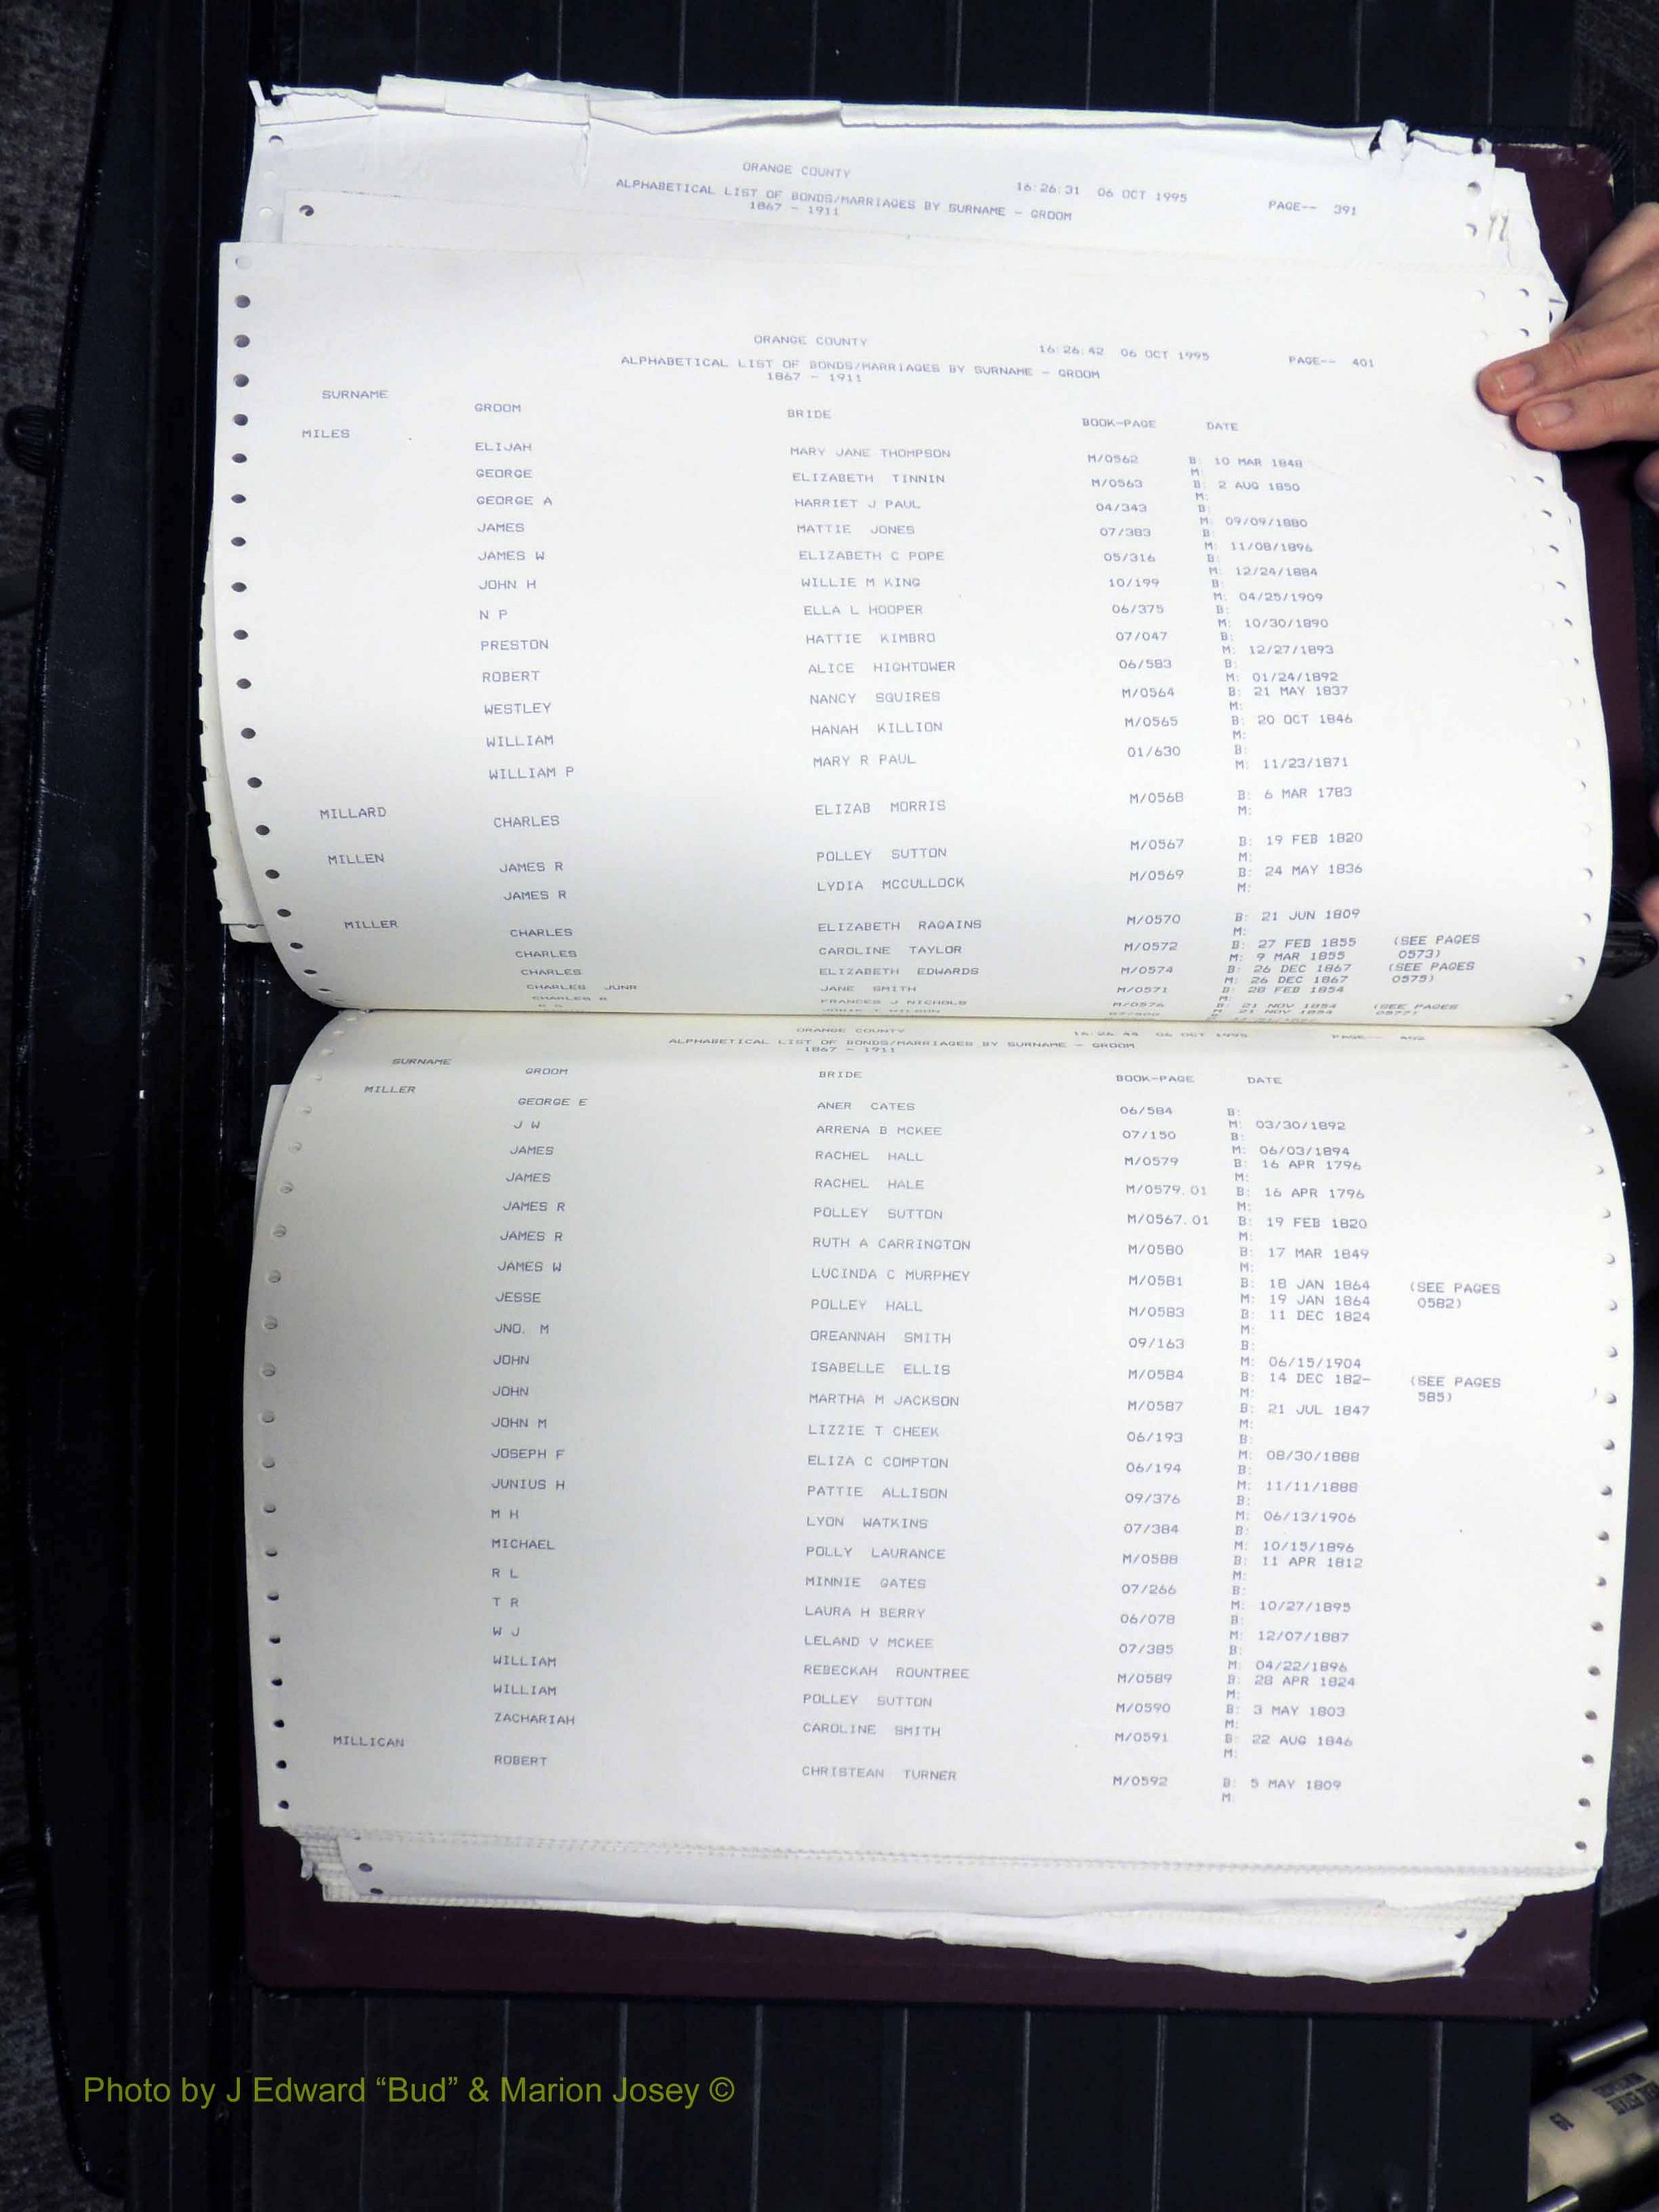 ORANGE COUNTY 16:26:31 06 OCT 1995 PAGE-- 391
ALPHABETICAL LIST OF BONDS/MARRIAGES BY SURNAME - GROOM
1867 - 1911
ORANGE COUNTY 16:26:42 06 OCT 1995 PAGE-- 401
ALPHABETICAL LIST OF BONDS/MARRIAGES BY SURNAME - GROOM
1867 - 1911
SURNAME GROOM BRIDE BOOK-PAGE DATE
MILES ELIJAH MARY JANE THOMPSON M/0562 B: 10 MAR 1848
M:
GEORGE ELIZABETH TINNIN M/0563 B: 2 AUG 1850
M:
GEORGE A HARRIET J PAUL 04/343 B:
M: 09/09/1880
JAMES MATTIE JONES 07/383 B:
M: 11/08/1896
JAMES W ELIZABETH C POPE 05/316 B:
M: 12/24/1884
JOHN H WILLIE M KING 10/199 B:
M: 04/25/1909
N P ELLA L HOOPER 06/375 B:
M: 10/30/1890
PRESTON HATTIE KIMBRO 07/047 B:
M: 12/27/1893
ROBERT ALICE HIGHTOWER 06/583 B:
M: 01/24/1892
WESTLEY NANCY SQUIRES M/0564 B: 21 MAY 1837
M:
WILLIAM HANAH KILLION M/0565 B: 20 OCT 1846
M:
WILLIAM P MARY R PAUL 01/630 B:
M: 11/23/1871
MILLARD CHARLES ELIZAB MORRIS M/0568 B: 6 MAR 1783
M:
MILLEN JAMES R POLLEY SUTTON M/0567 B: 19 FEB 1820
M:
JAMES R LYDIA MCCULLOCK M/0569 B: 24 MAY 1836
M:
MILLER CHARLES ELIZABETH RAGAINS M/0570 B: 21 JUN 1809
M:
CHARLES CAROLINE TAYLOR M/0572 B: 27 FEB 1855 (SEE PAGES
M: 9 MAR 1855 0573)
CHARLES ELIZABETH EDWARDS M/0574 B: 26 DEC 1867 (SEE PAGES
M: 26 DEC 1867 0575)
CHARLES JUNR JANE SMITH M/0571 B: 28 FEB 1854
M:
CHARLES FRANCES J NICHOLS M/0576 B: 21 NOV 1854 (SEE PAGES
M: 21 NOV 1854 0577)
ORANGE COUNTY 16:26:44 06 OCT 1995 PAGE-- 402
ALPHABETICAL LIST OF BONDS/MARRIAGES BY SURNAME - GROOM
1867 - 1911
SURNAME GROOM BRIDE BOOK-PAGE DATE
MILLER GEORGE E ANER CATES 06/584 B:
M: 03/30/1892
J W ARRENA B MCKEE 07/150 B:
M: 06/03/1894
JAMES RACHEL HALL M/0579 B: 16 APR 1796
M:
JAMES RACHEL HALE M/0579.01 B: 16 APR 1796
M:
JAMES R POLLEY SUTTON M/0567.01 B: 19 FEB 1820
M:
JAMES R RUTH A CARRINGTON M/0580 B: 17 MAR 1849
M:
JAMES W LUCINDA C MURPHEY M/0581 B: 18 JAN 1864 (SEE PAGES
M: 19 JAN 1864 0582)
JESSE POLLEY HALL M/0583 B: 11 DEC 1824
M:
JNO. M OREANNAH SMITH 09/163 B:
M: 06/15/1904
JOHN ISABELLE ELLIS M/0584 B: 14 DEC 182- (SEE PAGES
M: 585)
JOHN MARTHA M JACKSON M/0587 B: 21 JUL 1847
M:
JOHN M LIZZIE T CHEEK 06/193 B:
M: 08/30/1888
JOSEPH F ELIZA C COMPTON 06/194 B:
M: 11/11/1888
JUNIUS H PATTIE ALLISON 09/376 B:
M: 06/13/1906
M H LYON WATKINS 07/384 B:
M: 10/15/1896
MICHAEL POLLY LAURANCE M/0588 B: 11 APR 1812
M:
R L MINNIE GATES 07/266 B:
M: 10/27/1895
T R LAURA H BERRY 06/078 B:
M: 12/07/1887
W J LELAND V MCKEE 07/385 B:
M: 04/22/1896
WILLIAM REBECKAH ROUNTREE M/0589 B: 28 APR 1824
M:
WILLIAM POLLEY SUTTON M/0590 B: 3 MAY 1803
M:
ZACHARIAH CAROLINE SMITH M/0591 B: 22 AUG 1846
M:
MILLICAN ROBERT CHRISTEAN TURNER M/0592 B: 5 MAY 1809
M:
Photo by J Edward “Bud” & Marion Josey ©